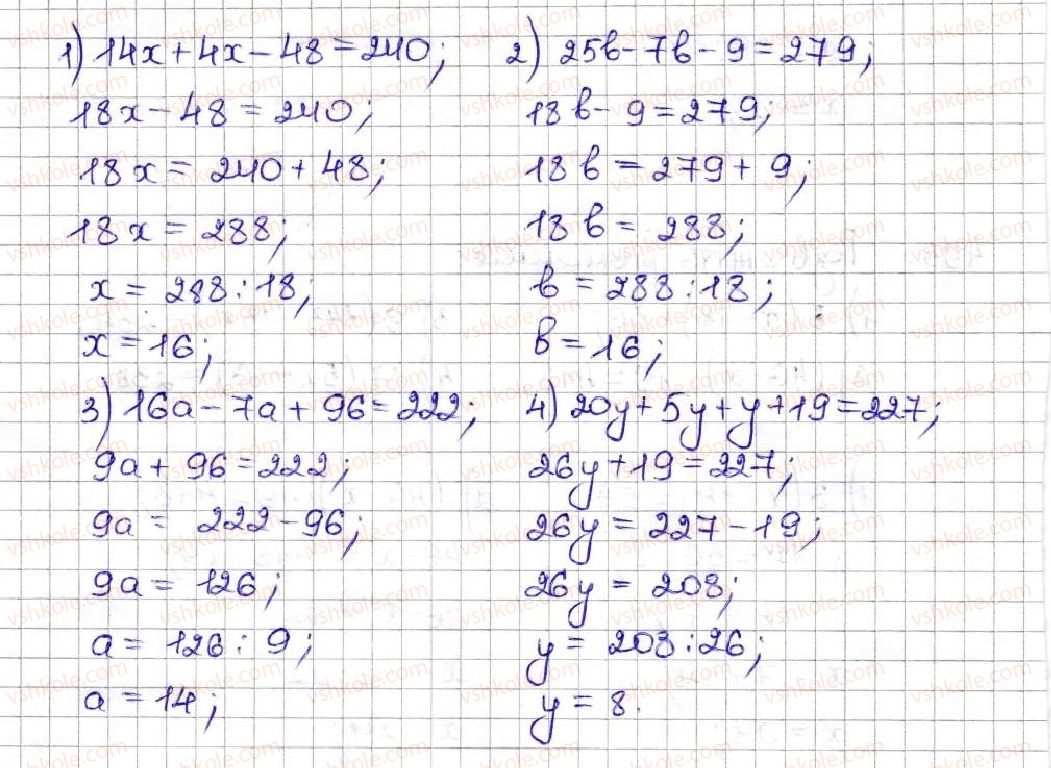 1) 14x + 4x - 48 = 240;
18x - 48 = 240;
18x = 240 + 48;
18x = 288;
x = 288 : 18;
x = 16;
2) 25b - 7b - 9 = 279;
18b - 9 = 279;
18b = 279 + 9;
18b = 288;
b = 288 : 18;
b = 16;
3) 16a - 7a + 96 = 222;
9a + 96 = 222;
9a = 222 - 96;
9a = 126;
a = 126 : 9;
a = 14;
4) 20y + 5y + y + 19 = 227;
26y + 19 = 227;
26y = 227 - 19;
26y = 208;
y = 208 : 26;
y = 8.
vshkole.com